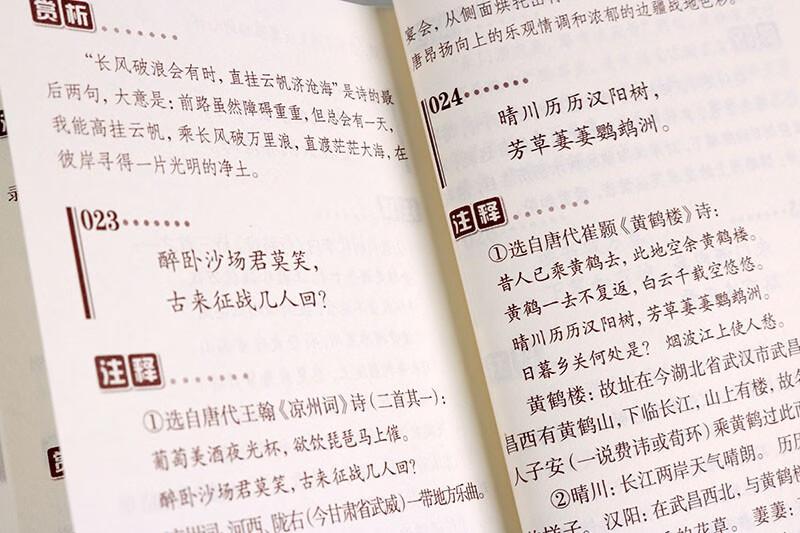 赏析
“长风破浪会有时，直挂云帆济沧海”是诗的最
后两句，大意是：前路虽然障碍重重，但总会有一天，
我能高挂云帆，乘长风破万里浪，直渡茫茫大海，在
彼岸寻得一片光明的净土。
023
醉卧沙场君莫笑，
古来征战几人回？
注释
①选自唐代王翰《凉州词》诗（二首其一）：
葡萄美酒夜光杯，欲饮琵琶马上催。
醉卧沙场君莫笑，古来征战几人回？
州词：河西、陇右（今甘肃省武威）一带地方乐曲。
宴会，从侧面烘托出
唐昂扬向上的乐观情调和浓郁的边疆战地色彩。
024
晴川历历汉阳树，
芳草萋萋鹦鹉洲。
注释
①选自唐代崔颢《黄鹤楼》诗：
昔人已乘黄鹤去，此地空余黄鹤楼。
黄鹤一去不复返，白云千载空悠悠。
晴川历历汉阳树，芳草萋萋鹦鹉洲。
日暮乡关何处是？烟波江上使人愁。
黄鹤楼：故址在今湖北省武汉市武昌
昌西有黄鹤山，下临长江，山上有楼，故名
人子安（一说费讳或荀环）乘黄鹤过此而
②晴川：长江两岸天气晴朗。历历
的样子。汉阳：在武昌西北，与黄鹤楼
的花草。萋萋：